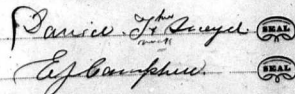 Daniel his + mark Sneyd. SEAL
E J Campbell. SEAL